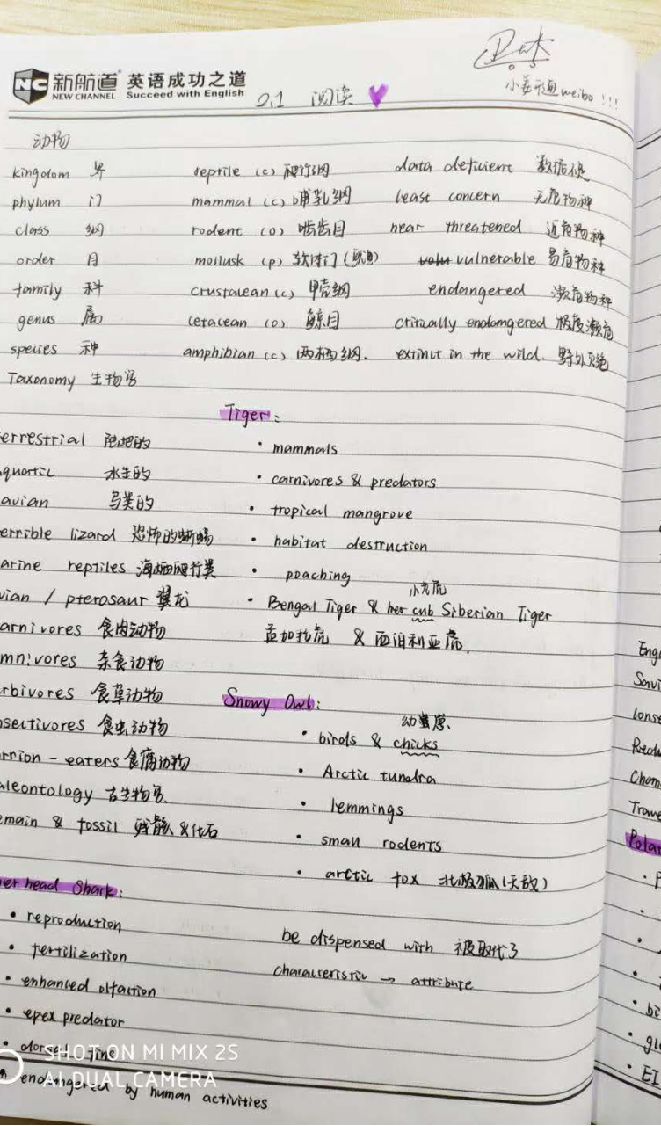 新航道 英语成功之道
NEW CHANNEL Succeed with English
2.1 阅读
weibo !!!
动物
kingdom 界 reptile (c) 爬行纲 data deficient 数据缺乏
phylum 门 mammal (c) 哺乳纲 least concern 无危物种
class 纲 rodent (o) 啮齿目 near threatened 近危物种
order 目 mollusk (p) 软体门 vulnerable 易危物种
family 科 crustacean (c) 甲壳纲 endangered 濒危物种
genus 属 cetacean (o) 鲸目 critically endangered 极度濒危
species 种 amphibian (c) 两栖纲. extinct in the wild. 野外灭绝
Taxonomy 生物学
Tiger:
errestrial 陆地的 • mammals
quatic 水生的 • carnivores & predators
avian 鸟类的 • tropical mangrove
errible lizard 恐怖的蜥蜴 • habitat destruction
arine reptiles 海栖爬行类 • poaching
小老虎
vian / pterosaur 翼龙 • Bengal Tiger & her cub Siberian Tiger
arnivores 食肉动物 孟加拉虎 & 西伯利亚虎
mnivores 杂食动物
rbivores 食草动物 Snowy Owl:
sectivores 食虫动物 • birds & chicks
rrion - eaters 食腐动物 • Arctic tundra
aleontology 古生物学 • lemmings
emain & fossil 残骸 & 化石 • small rodents
• arctic fox 北极狐 (天敌)
er head Shark:
• reproduction be dispensed with 被取代了
• fertilization characteristic → attribute
• enhanced olfaction
• epex predator
• dorsal fine
• endangered by human activities
SHOT ON MI MIX 2S
AI DUAL CAMERA
Polar